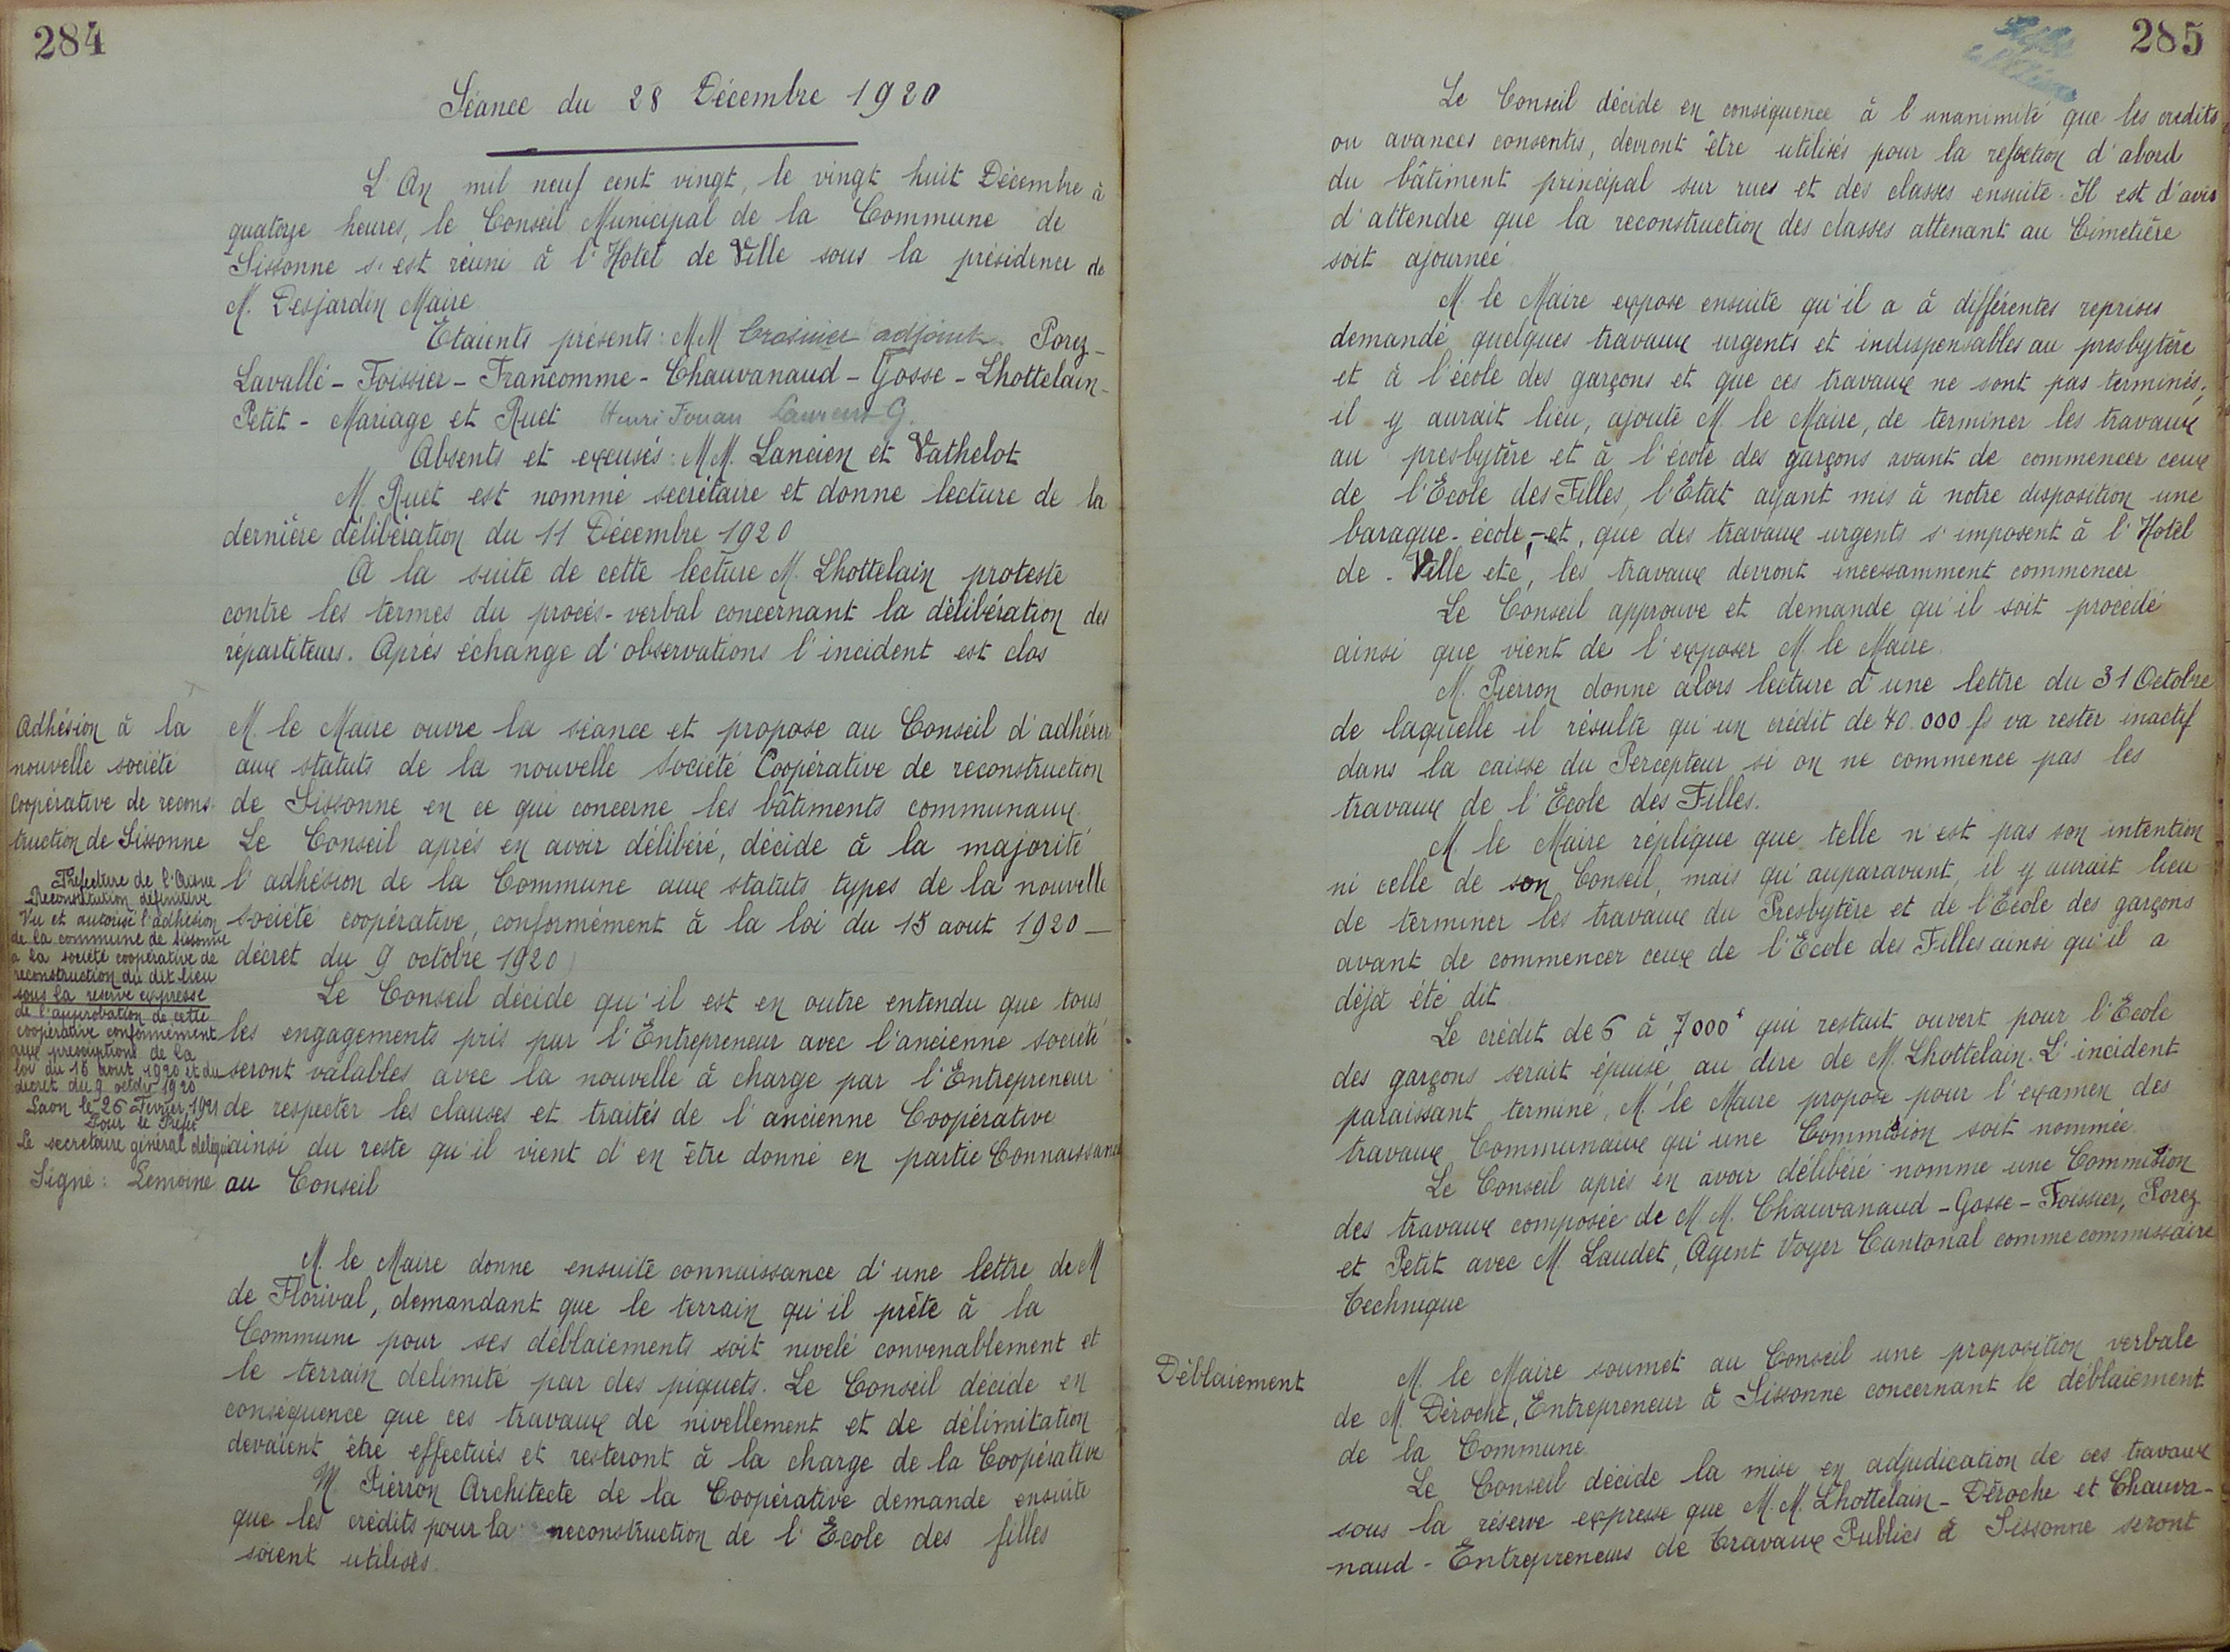 284
Séance du 28 Décembre 1920
L'An mil neuf cent vingt, le vingt huit Décembre à
quatorze heures, le Conseil Municipal de la Commune de
Sissonne s'est réuni à l'Hotel de Ville sous la présidence de
M. Desjardin Maire
Etaients présents : MM Crosnier adjoint Porez -
Lavallé - Foissier - Francomme - Chauvanaud - Gosse - Lhottelain -
Petit - Mariage et Ruet Henri Jouan Laurent G.
Absents et excusés : MM. Lancien et Vathelot
M. Ruet est nommé secrétaire et donne lecture de la
dernière délibération du 11 Décembre 1920
A la suite de cette lecture M. Lhottelain proteste
contre les termes du procés-verbal concernant la délibération des
répartiteurs. Aprés échange d'observations l'incident est clos
Adhésion à la
nouvelle société
Coopérative de recons-
truction de Sissonne
Préfecture de l'Aisne
Reconstitution définitive
Vu et autorisé l'adhésion
de la commune de Sissonne
à la société coopérative de
reconstruction du dit lieu
sous la réserve expresse
de l'approbation de cette
coopérative conformément
aux prescriptions de la
loi du 15 aout 1920 et du
décret du 9 octobre 1920
Laon le 26 Février 1921
Pour le Préfet
Le secrétaire général délégué
Signé : Lemoine
M. le Maire ouvre la séance et propose au Conseil d'adhérer
aux statuts de la nouvelle Société Coopérative de reconstruction
de Sissonne en ce qui concerne les bâtiments communaux.
Le Conseil aprés en avoir délibéré, décide à la majorité
l'adhésion de la Commune aux statuts types de la nouvelle
société coopérative, conformément à la loi du 15 aout 1920 —
décret du 9 octobre 1920
Le Conseil décide qu'il est en outre entendu que tous
les engagements pris par l'Entrepreneur avec l'ancienne société
seront valables avec la nouvelle à charge par l'Entrepreneur
de respecter les clauses et traités de l'ancienne Coopérative
ainsi du reste qu'il vient d'en être donné en partie Connaissance
au Conseil
M. le Maire donne ensuite connaissance d'une lettre de M
de Florival, demandant que le terrain qu'il prête à la
Commune pour ses déblaiements soit nivelé convenablement et
le terrain délimité par des piquets. Le Conseil décide en
conséquence que ces travaux de nivellement et de délimitation
devaient être effectués et resteront à la charge de la Coopérative
M. Pierron Architecte de la Coopérative demande ensuite
que les crédits pour la reconstruction de l'Ecole des filles
soient utilisés.
285
Le Conseil décide en conséquence à l'unanimité que les crédits
ou avances consentis, devront être utilisés pour la refection d'abord
du bâtiment principal sur rues et des classes ensuite. Il est d'avis
d'attendre que la reconstruction des classes attenant au Cimetière
soit ajournée
M. le Maire expose ensuite qu'il a à différentes reprises
demandé quelques travaux urgents et indispensables au presbytère
et à l'école des garçons et que ces travaux ne sont pas terminés;
il y aurait lieu, ajoute M. le Maire, de terminer les travaux
au presbytère et à l'école des garçons avant de commencer ceux
de l'Ecole des Filles, l'Etat ayant mis à notre disposition une
baraque-école, et, que des travaux urgents s'imposent à l'Hotel
de - Ville etc, les travaux devront incessamment commencer
Le Conseil approuve et demande qu'il soit procédé
ainsi que vient de l'exposer M. le Maire.
M. Pierron donne alors lecture d'une lettre du 31 Octobre
de laquelle il résulte qu'un crédit de 40.000 fs va rester inactif
dans la caisse du Percepteur si on ne commence pas les
travaux de l'Ecole des Filles.
M. le Maire réplique que telle n'est pas son intention
ni celle de son Conseil, mais qu'auparavant, il y aurait lieu
de terminer les travaux du Presbytère et de l'Ecole des garçons
avant de commencer ceux de l'Ecole des Filles ainsi qu'il a
déjà été dit
Le crédit de 6 à 7000f qui restait ouvert pour l'Ecole
des garçons serait épuisé au dire de M. Lhottelain. L'incident
paraissant terminé, M. le Maire propose pour l'examen des
travaux Communaux qu'une Commission soit nommée.
Le Conseil aprés en avoir délibéré nomme une Commission
des travaux composée de M.M. Chauvanaud - Gosse - Foissier, Porez
et Petit avec M. Laudet, Agent Voyer Cantonal comme commissaire
technique
Déblaiement
M. le Maire soumet au Conseil une proposition verbale
de M. Déroche, Entrepreneur à Sissonne concernant le déblaiement
de la Commune.
Le Conseil décide la mise en adjudication de ces travaux
sous la réserve expresse que M.M. Lhottelain - Déroche et Chauva-
naud - Entrepreneurs de travaux Publics à Sissonne seront